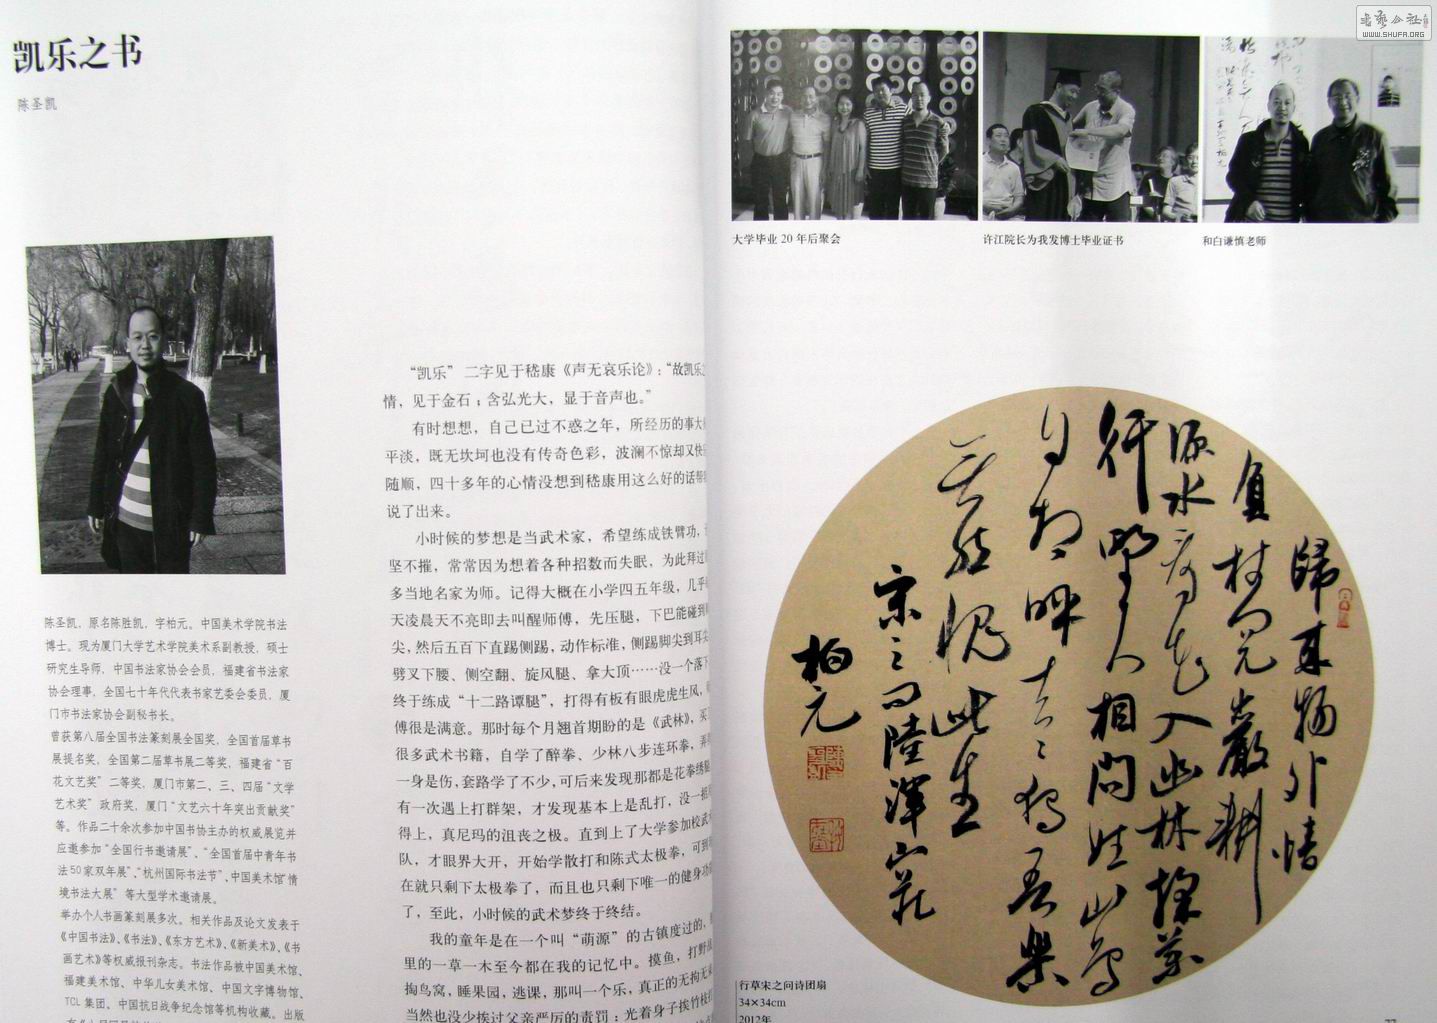 凯乐之书
陈圣凯
陈圣凯，原名陈胜凯，字柏元。中国美术学院书法
博士。现为厦门大学艺术学院美术系副教授，硕士
研究生导师，中国书法家协会会员，福建省书法家
协会理事，全国七十年代代表书家艺委会委员，厦
门市书法家协会副秘书长。
曾获第八届全国书法篆刻展全国奖，全国首届草书
展提名奖，全国第二届草书展二等奖，福建省“百
花文艺奖”二等奖，厦门市第二、三、四届“文学
艺术奖”政府奖，厦门“文艺六十年突出贡献奖”
等。作品二十余次参加中国书协主办的权威展览并
应邀参加“全国行书邀请展”、“全国首届中青年书
法50家双年展”、“杭州国际书法节”、中国美术馆“情
境书法大展”等大型学术邀请展。
举办个人书画篆刻展多次。相关作品及论文发表于
《中国书法》、《书法》、《东方艺术》、《新美术》、《书
画艺术》等权威报刊杂志。书法作品被中国美术馆、
福建美术馆、中华儿女美术馆、中国文字博物馆、
TCL 集团、中国抗日战争纪念馆等机构收藏。出版
“凯乐”二字见于嵇康《声无哀乐论》：“故凯乐之
情，见于金石；含弘光大，显于音声也。”
有时想想，自己已过不惑之年，所经历的事大
平淡，既无坎坷也没有传奇色彩，波澜不惊却又快
随顺，四十多年的心情没想到嵇康用这么好的话帮
说了出来。
小时候的梦想是当武术家，希望练成铁臂功，
坚不摧，常常因为想着各种招数而失眠，为此拜过
多当地名家为师。记得大概在小学四五年级，几乎
天凌晨天不亮即去叫醒师傅，先压腿，下巴能碰到
尖，然后五百下直踢侧踢，动作标准，侧踢脚尖到耳
劈叉下腰、侧空翻、旋风腿、拿大顶……没一个落下
终于练成“十二路谭腿”，打得有板有眼虎虎生风，
傅很是满意。那时每个月翘首期盼的是《武林》，买
很多武术书籍，自学了醉拳、少林八步连环拳，弄
一身是伤，套路学了不少，可后来发现那都是花拳绣腿
有一次遇上打群架，才发现基本上是乱打，没一招
得上，真尼玛的沮丧之极。直到上了大学参加校武
队，才眼界大开，开始学散打和陈式太极拳，可到
在就只剩下太极拳了，而且也只剩下唯一的健身功
了，至此，小时候的武术梦终于终结。
我的童年是在一个叫“萌源”的古镇度过的，
里的一草一木至今都在我的记忆中。摸鱼，打野战
掏鸟窝，睡果园，逃课，那叫一个乐，真正的无拘无
当然也没少挨过父亲严厉的责罚：光着身子挨竹枝
WWW.SHUFA.ORG
大学毕业 20 年后聚会
许江院长为我发博士毕业证书
和白谦慎老师
歸來物外情
負杖閱巖耕
源水看花入幽林採藥
行野人相問姓山鳥
自相呼去去獨吾樂
無能愧此生
宋之问陸渾山莊
柏元
行草宋之问诗团扇
34×34cm
2012年